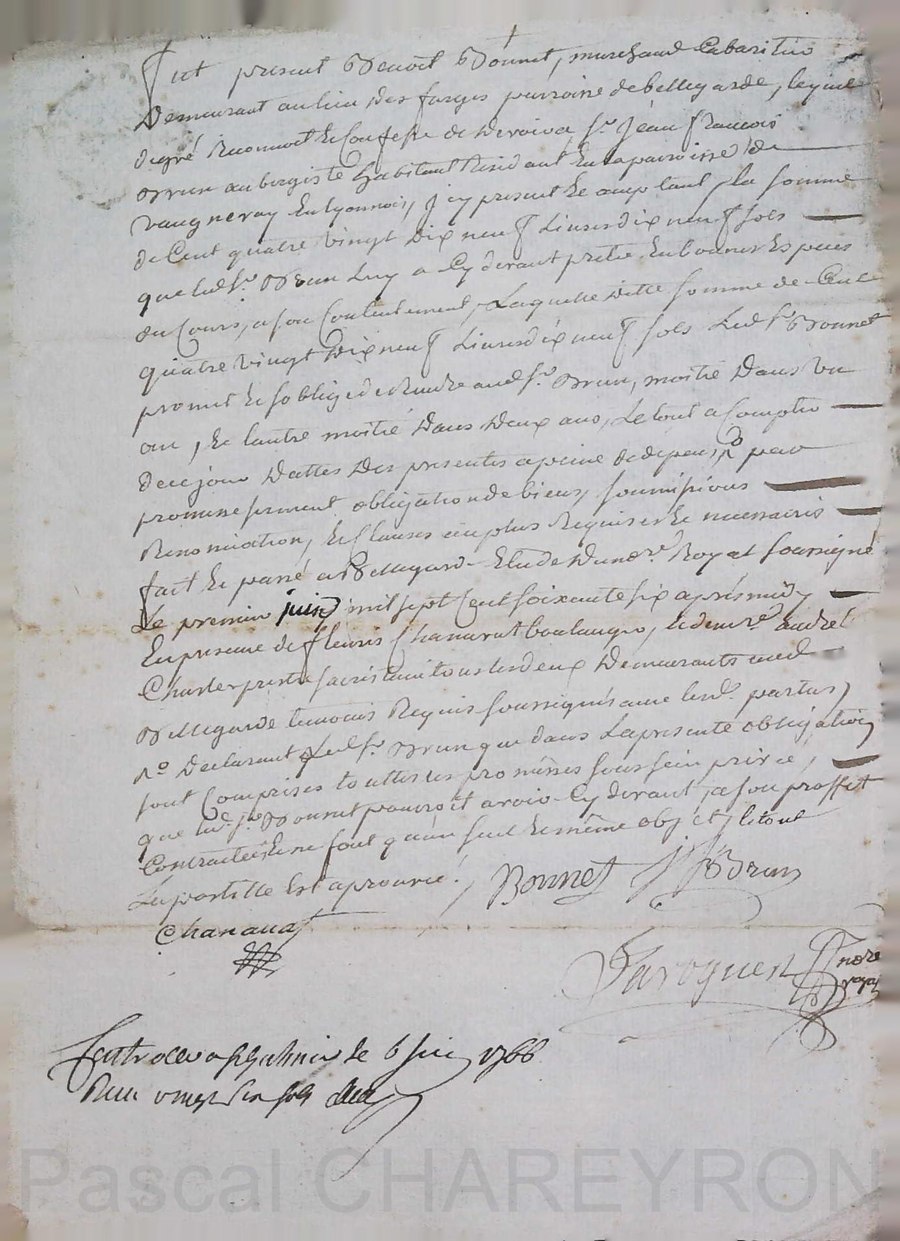 fut present Benoit Bonnet, marchand Cabaritier
Demeurant au lieu des farges parroisse de bellegarde, lequel
de gré Reconnoit Et Confesse de Devoir a Sr. Jean francois
Brun aubergiste habitant Residant En la paroisse de
vaugneray En lyonnois, Icy present Et acceptant, la somme
de Cent quatre vingt Dix neuf Livres dix neuf sols
que led. Sr. Brun Luy a Cy devant prêté En bonnes Especes
du Cours, a son Contentement, Laquelle ditte somme de Cent
quatre vingt Dix neuf Livres dix neuf sols Led. Sr. Bonnet
promet Et soblige de Rendre aud. Sr. Brun, moitié Dans un
an, Et lautre moitié Dans Deux ans, Le tout a Compter
de ce jour Dattes Des presentes a peine de depens, par
promesse serment obligation de biens, soumissions
Renonciation, Et Clauses au plus Requises Et necessaires
fait Et passé a Bellegarde Etude du nore. Royal soussigné
Le premier juin mil sept Cent soixante six après midy
En presence de fleuris Chanavat boulanger, Et de me. andré
Charles prestre sacristain tous les deux Demeurants aud.
Bellegarde temoins Requis soussignés avec lesd. parties,
Declarant led. Sr. Brun que dans La presente obligation
sont Comprises touttes les promesses sous sein privé,
que led. Sr. Bonnet pouvoit avoir Cy devant, a son proffit
Contractées Et ne font qu'un seul Et même objet, le tout
La postille Est aprouvée /
Bonnet J f Brun
Chanavat
nore
royal
le 6 Juin 1766
Reçu vingt six sols